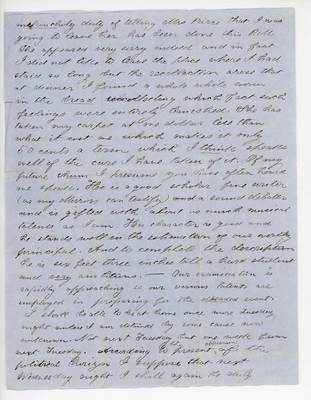 melancholy duty of telling Mrs Pierce that I was
going to leave her has been done this
She appeared very sorry indeed and in fact
I did not like to leave the place where I had
staid so long but the recollection arose that
at dinner I found a whole
in the bread recollecting which fact such
feelings were entirely banished. She has
taken my carpet at one dollar less than
what it cost me which makes it only
50 cents a term which I think speaks
well of the care I have taken of it. Of my
future chum I presume you have often heard
me speak. He is a good scholar fine writer
(as my can testify) and a sound debater
and is gifted with about as much musical
talents as I am. His character is good and
he stands well in the estimation of our
principal. And to complete the description
he is six feet three inches tall a hard student
and very ambitious. — Our examination is
rapidly approaching & our various talents are
employed in preparing for the event.
I shall be able to be at home once more Tuesday
night unless I am detained by some cause now
unknown. Not next Tuesday but one week from
next Tuesday. According to present of the
political horizon I suppose that next
Wednesday night I shall again be